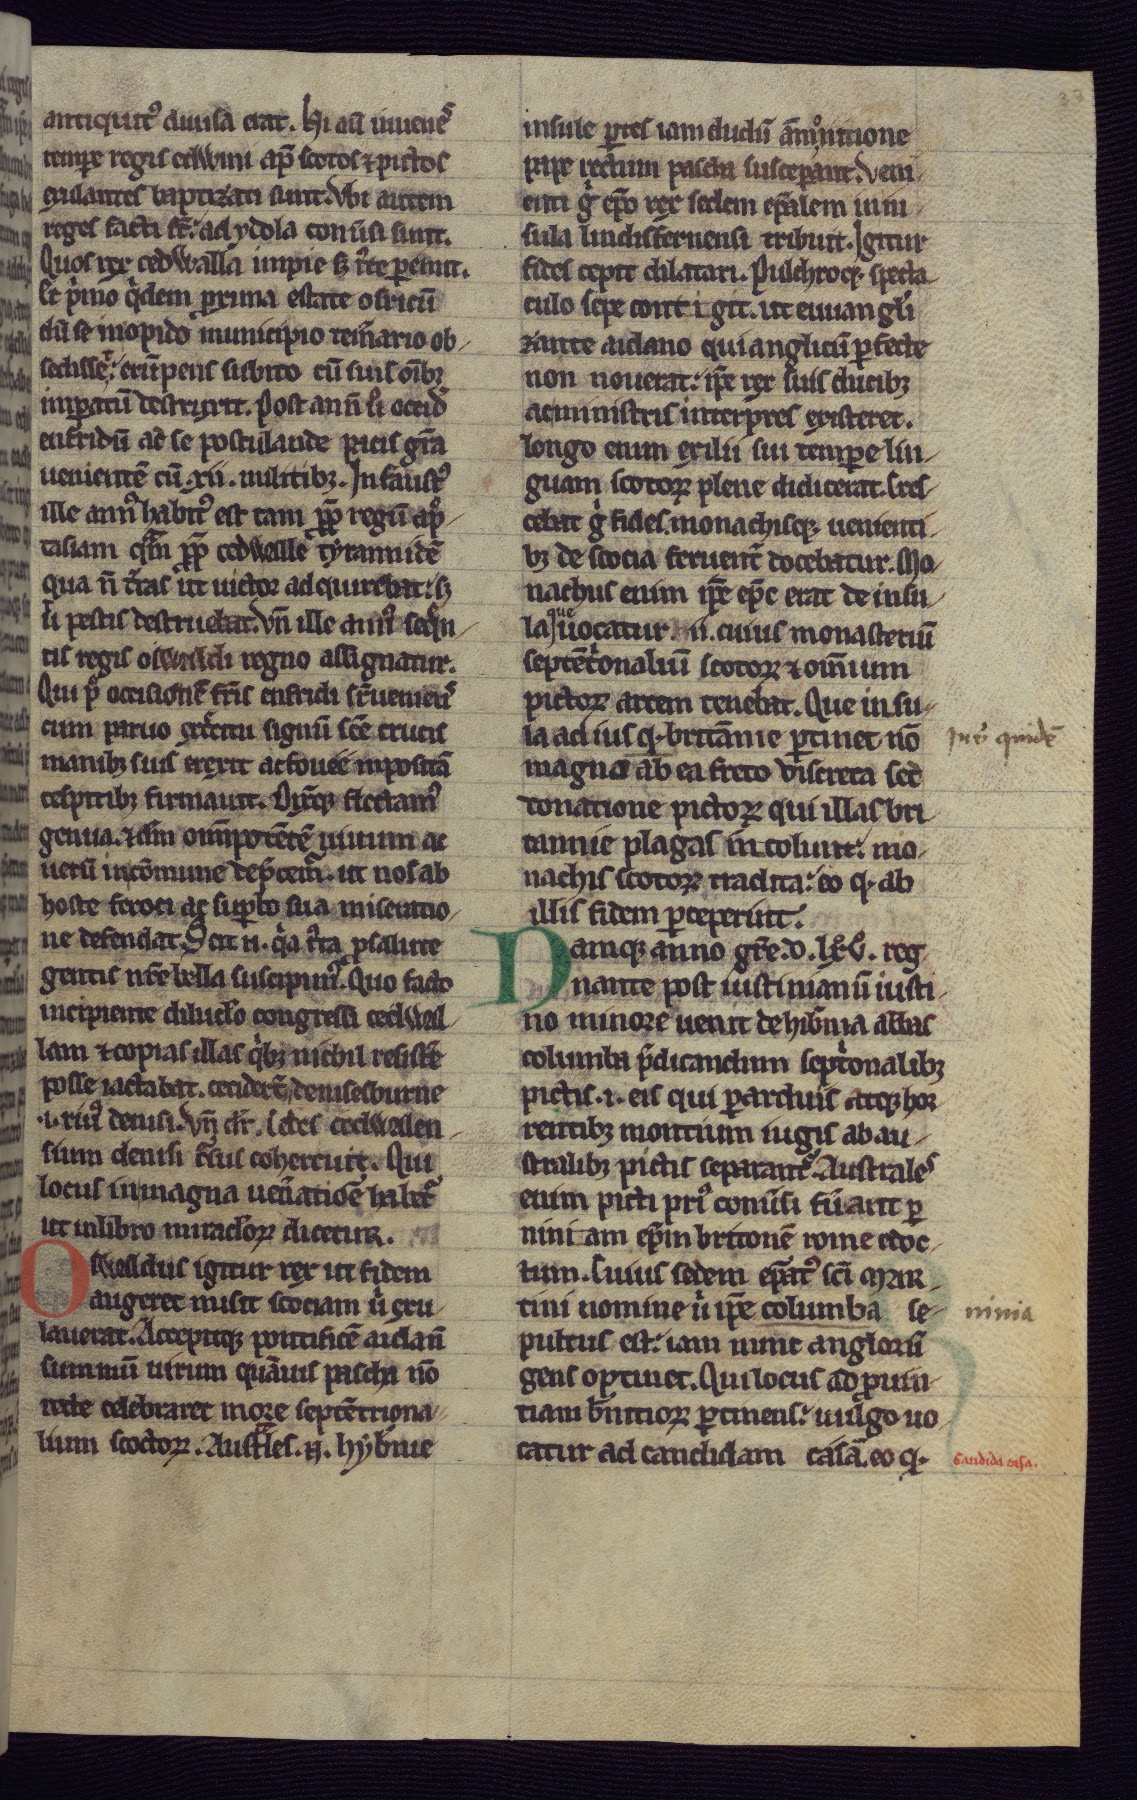 antiquit᷒ diuisa erat. Hi aū iuuene᷒s
tempe regis edwini ap̄ scotos ⁊ pictos
exulantes baptizati sunt. Vbi autem
reges facti st̄: ad ydola conūsi sunt.
Quos rex cedwalla impie sꝫ iᷓte pemit.
Et pͥmo qͥdem proxima estate osricū
dū se inopido municipio temᷓario ob-
sedisset: erūpens subito cū suis oībꝫ
imparatū destruxit. Post annū occid
enfridū ad se postulande pacis gr̄a
uenientē cū .xii. militibꝫ. Infaust᷒
ille ann᷒ habit᷒ est tam ꝓpt regū apo-
tasiam qͣm ꝓpt cedwalle tyrannidē
qua n̄ tras ut uictor adquirebat: sꝫ
ut pestis destruebat. Vn̄ ille ann᷒ seqͥn-
tis regis oswaldi regno assignatur.
Qui pͦ occisionē frīs enfridi supueniens
cum paruo exercitu signū sc̄e crucis
manibꝫ suis erexit ac fouee inpositā
cespitibꝫ firmauit. Dixitqꝫ flectam᷒
genua. ⁊ dm̄ om̄ipotētē uiuum ac
uerū incōmune dep̄cem᷒. ut nos ab
hoste feroci ac supbo sua miseratio-
ne defendat. Scit .n. qͥa iusta ꝓ salute
gentis nr̄e bella suscipim᷒. Quo facto
incipiente diluclo congressi cedwal-
lam ⁊ copias illas qͥbꝫ nichil resistē
posse iactabat. cecidert denisesburne
.i. riu᷒ denisi. Vn̄ dr̄. Cedes cedwallen-
sium denisi cᷓsus cohercuit. Qui
locus in magna uenᷓatiōe habetᷓ
ut in libro miraclorꝝ dicetur.
Oswaldus igitur rex ut fidem
augeret misit scociam uͥ exu-
lauerat. Accepitqꝫ pontificē aidanū
summū uirum quāuis pascha nō
recte celebraret more septētriona-
lium scottorꝝ. Australes .n. hybnie
insule ptes iam dudū āmonitione
pape rectum pascha susceperant. Veni-
enti gͥ ep̄o rex sedem ep̄alem in in-
sula lindisfernensi tribuit. Igitur
fides cepit dilatari. Pulchroqꝫ specta-
culo sepe contigit. ut euuangli-
zante aidano qui anglicū pfecte
non nouerat: ipe rex suis ducibꝫ
ac ministris interpres existeret.
longo enim exilii sui tempe lin-
guam scotorꝝ plene didicerat. Cres-
cebat gͥ fides. monachisqꝫ uenienti-
bꝫ de scocia feruentᷓ docebatur. Mo-
nachus enim ipe ep̄c erat de insu-
la que uocatur .ii. cuius monasteriū
septētͥonaliū scotorꝝ ⁊ omnium
pictorꝝ arcem tenebat. Que insu-
la ad ius qͥ. britānie ptinet nō
magno ab ea freto discreta sed
donatione pictorꝝ qui illas bri-
tannie plagas incolunt: mo-
nachis scotorꝝ tradita: eo q̄. ab
illis fidem pceperint.
Damqꝫ anno gr̄e .d. lx.v. reg-
nante post iustinianū iusti-
no minore uenit de hibnia abbas
columba p̄dicandum septͥonalibꝫ
pictis .i. eis qui p arduis atqꝫ hor-
rentibꝫ montium iugis ab au-
stralibꝫ pictis separantᷓ. Australes
enim picti pri᷒ conūsi fūant p
niniam ep̄m britonē rome edoc-
tum. Cuius sedem ep̄at᷒ sc̄i MAR
tini nomine uͥ ipe columba se-
pultus est: iam nunc anglorū
gens optinet. Qui locus ad ꝓuin-
tiam bniciorꝝ ptinens: uulgo uo-
catur ad candidam casā. eo q̄.
quidē
ninia
Candida casa.